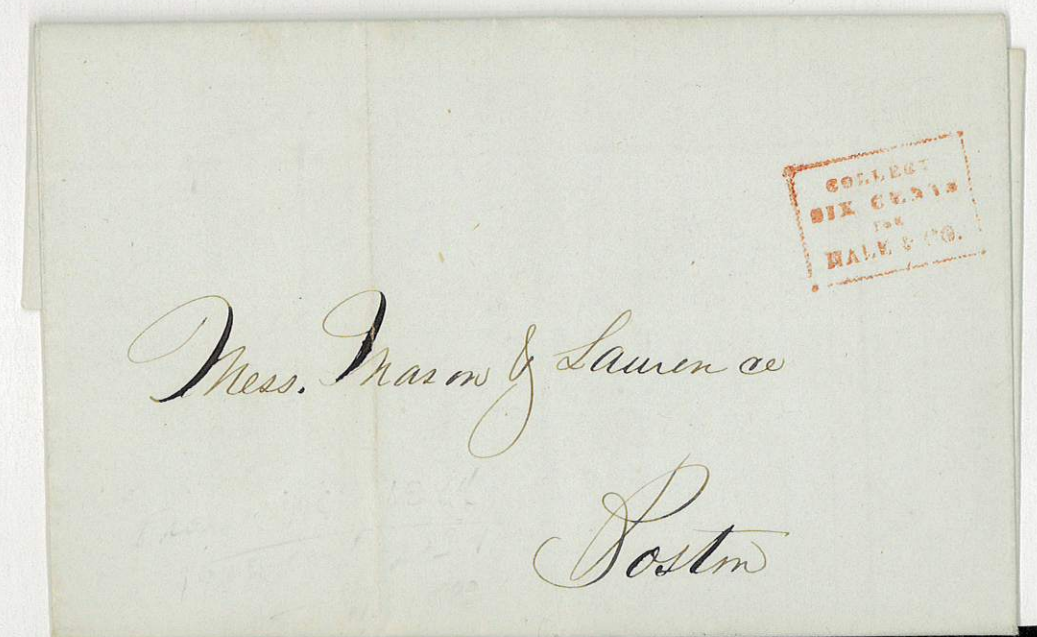 COLLECT
SIX CENTS
FOR
HALE & CO.
Mess. Mason & Lawrence
Boston